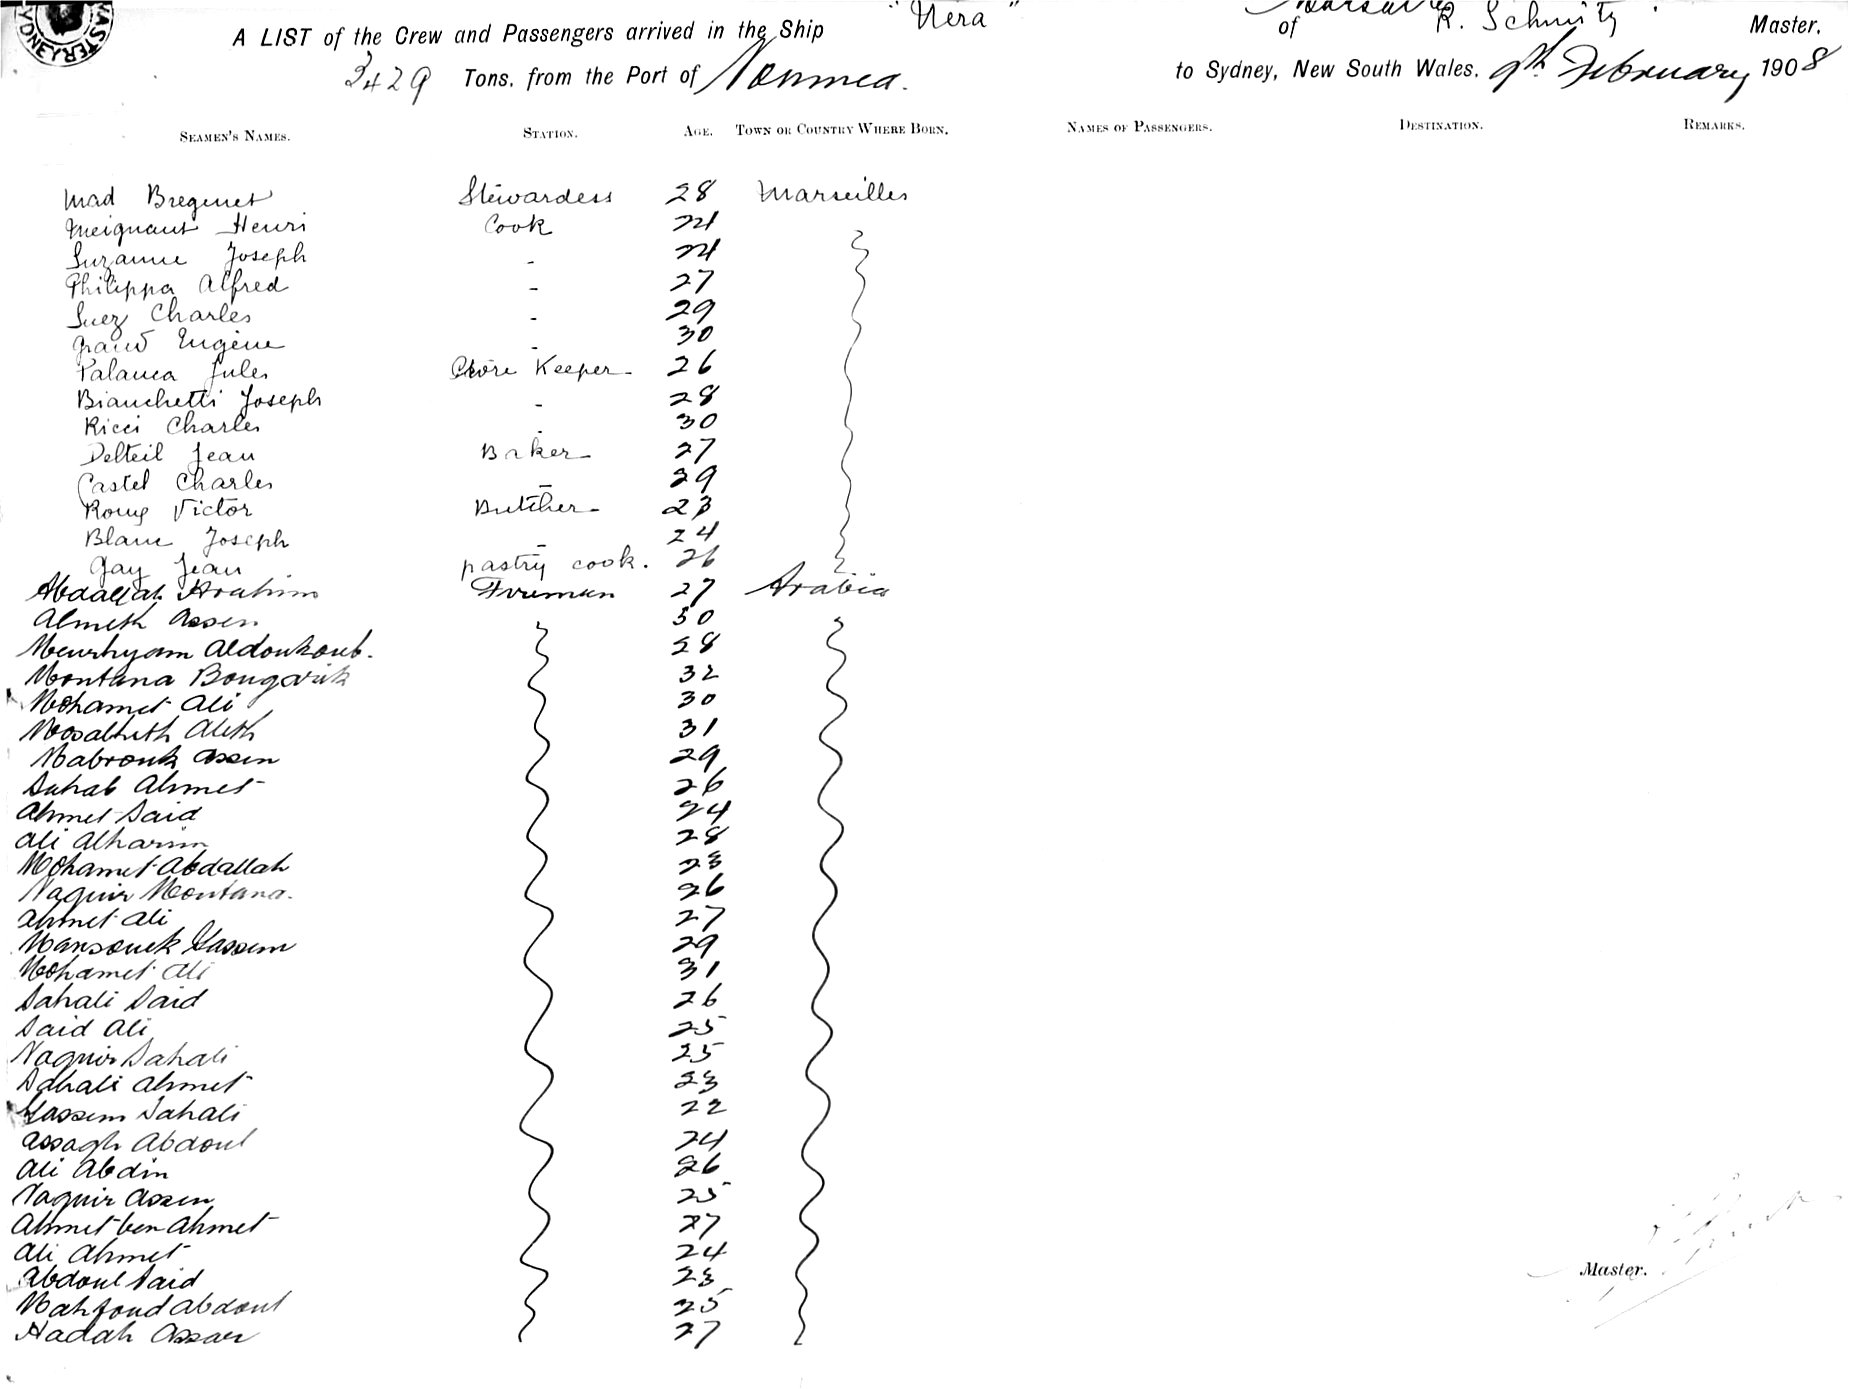 A LIST of the Crew and Passengers arrived in the Ship "Nera" of R. Schmitz Master.
3429 Tons. from the Port of Noumea. to Sydney, New South Wales. 9th February 1908
SEAMEN'S NAMES. STATION. AGE. TOWN OR COUNTRY WHERE BORN. NAMES OF PASSENGERS. DESTINATION. REMARKS.
Mad Bregenet Stewardess 28 Marseilles
Meignant Henri Cook 24
Suzanne Joseph - 24
Philippa Alfred - 27
Suez Charles - 29
Grand Eugène - 30
Palanca Jules Store Keeper 26
Bianchetti Joseph - 28
Ricci Charles - 30
Delteil Jean Baker 27
Castel Charles - 29
Victor Butcher 23
Blanc Joseph - 24
Gay Jean pastry cook. 26
Abdallah Ibrahim Fireman 27 Arabia
Almeth Assen 30
28
Montana 32
Mohamet Ali 30
31
Mabrouk Assen 29
Sahab Ahmet 26
Ahmet Said 24
Ali Alharim 28
Mohamet Abdallah 23
Naguir Montana. 26
Ahmet Ali 27
Mansouek Hassem 29
Mohamet Ali 31
Sahali Said 26
Said Ali 25
Naguir Sahali 25
Sahali Ahmet 23
Hassem Sahali 22
Assagh Abdoul 24
Ali Abdin 26
Naguir Assen 25
Ahmet ben Ahmet 27
Ali Ahmet 24
Abdoul Said 23
Master.
Mahfoud Abdoul 25
Hadah Assan 27